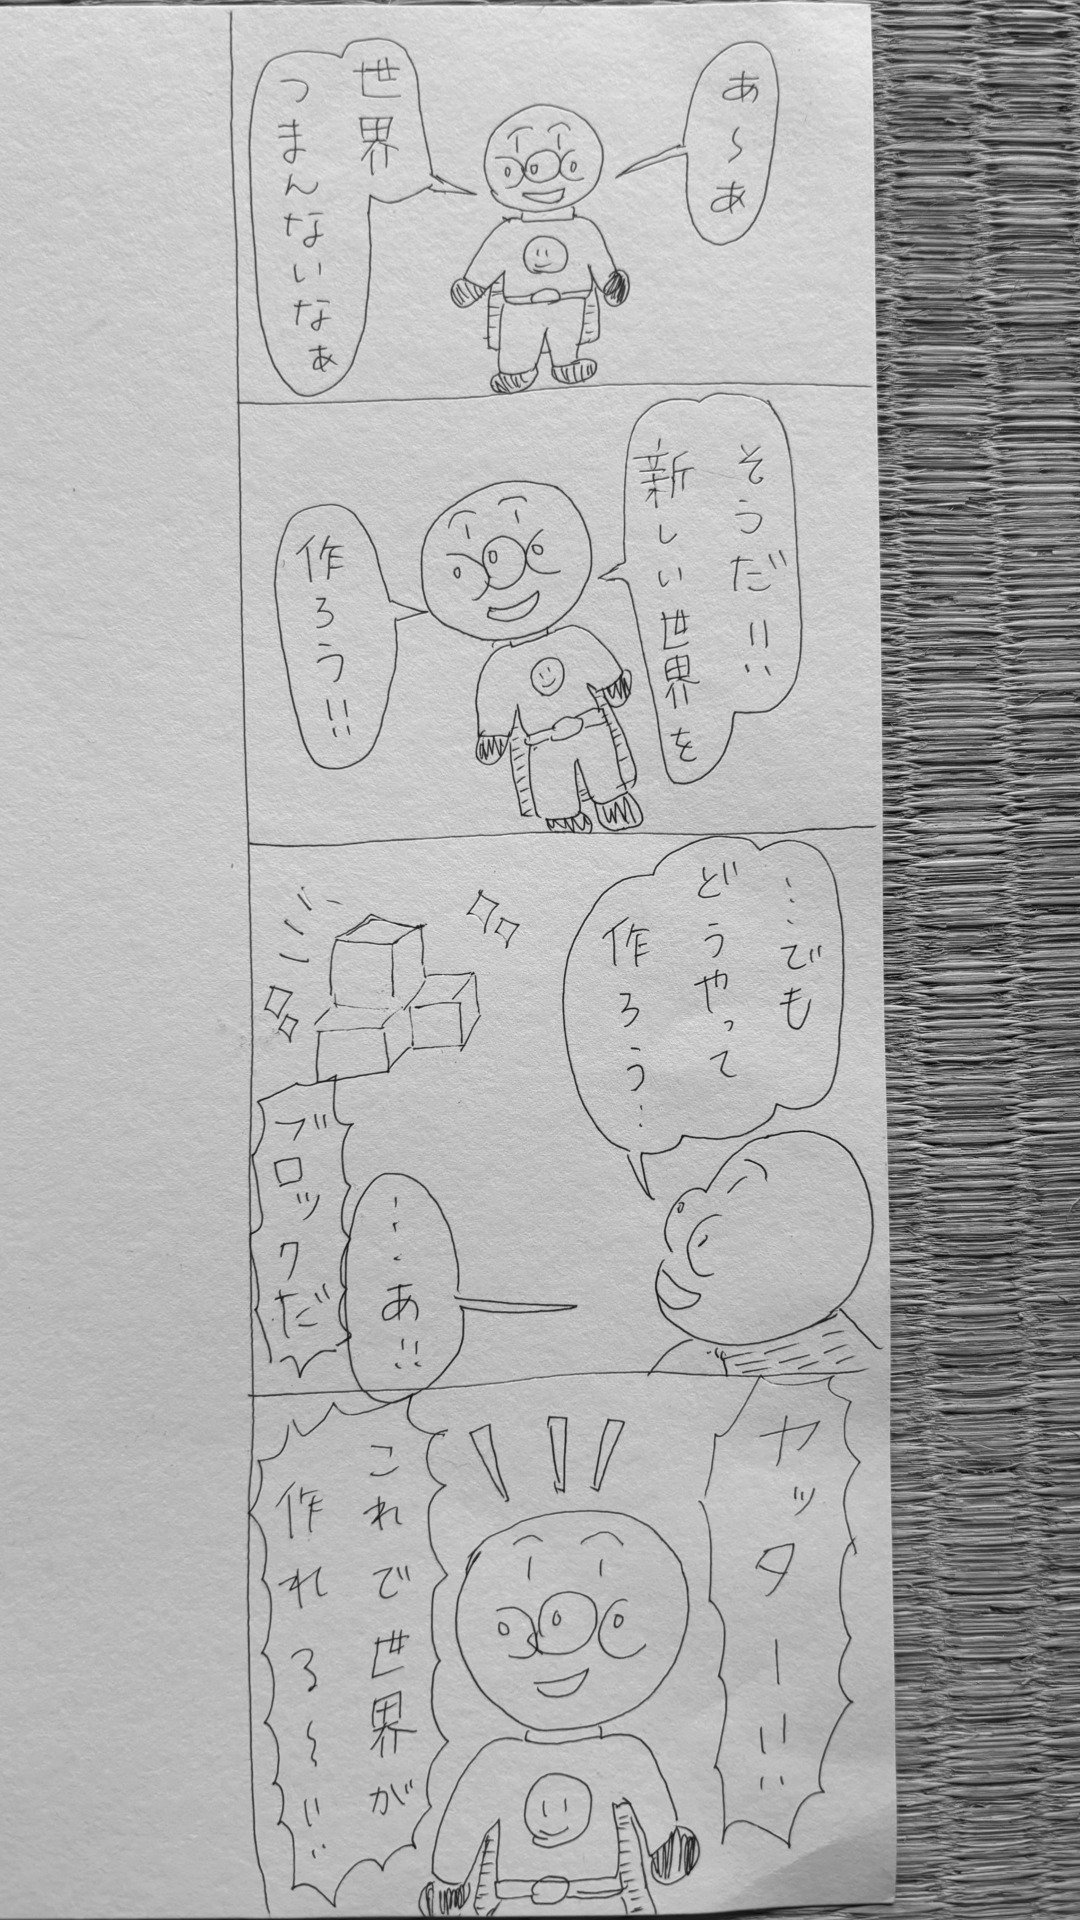 あ〜あ
世界
つまんないなぁ
そうだ!!
新しい世界を
作ろう!!
…でも
どうやって
作ろう…
…あ!!
ブロックだ
ヤッター!!
これで世界が
作れる〜!!